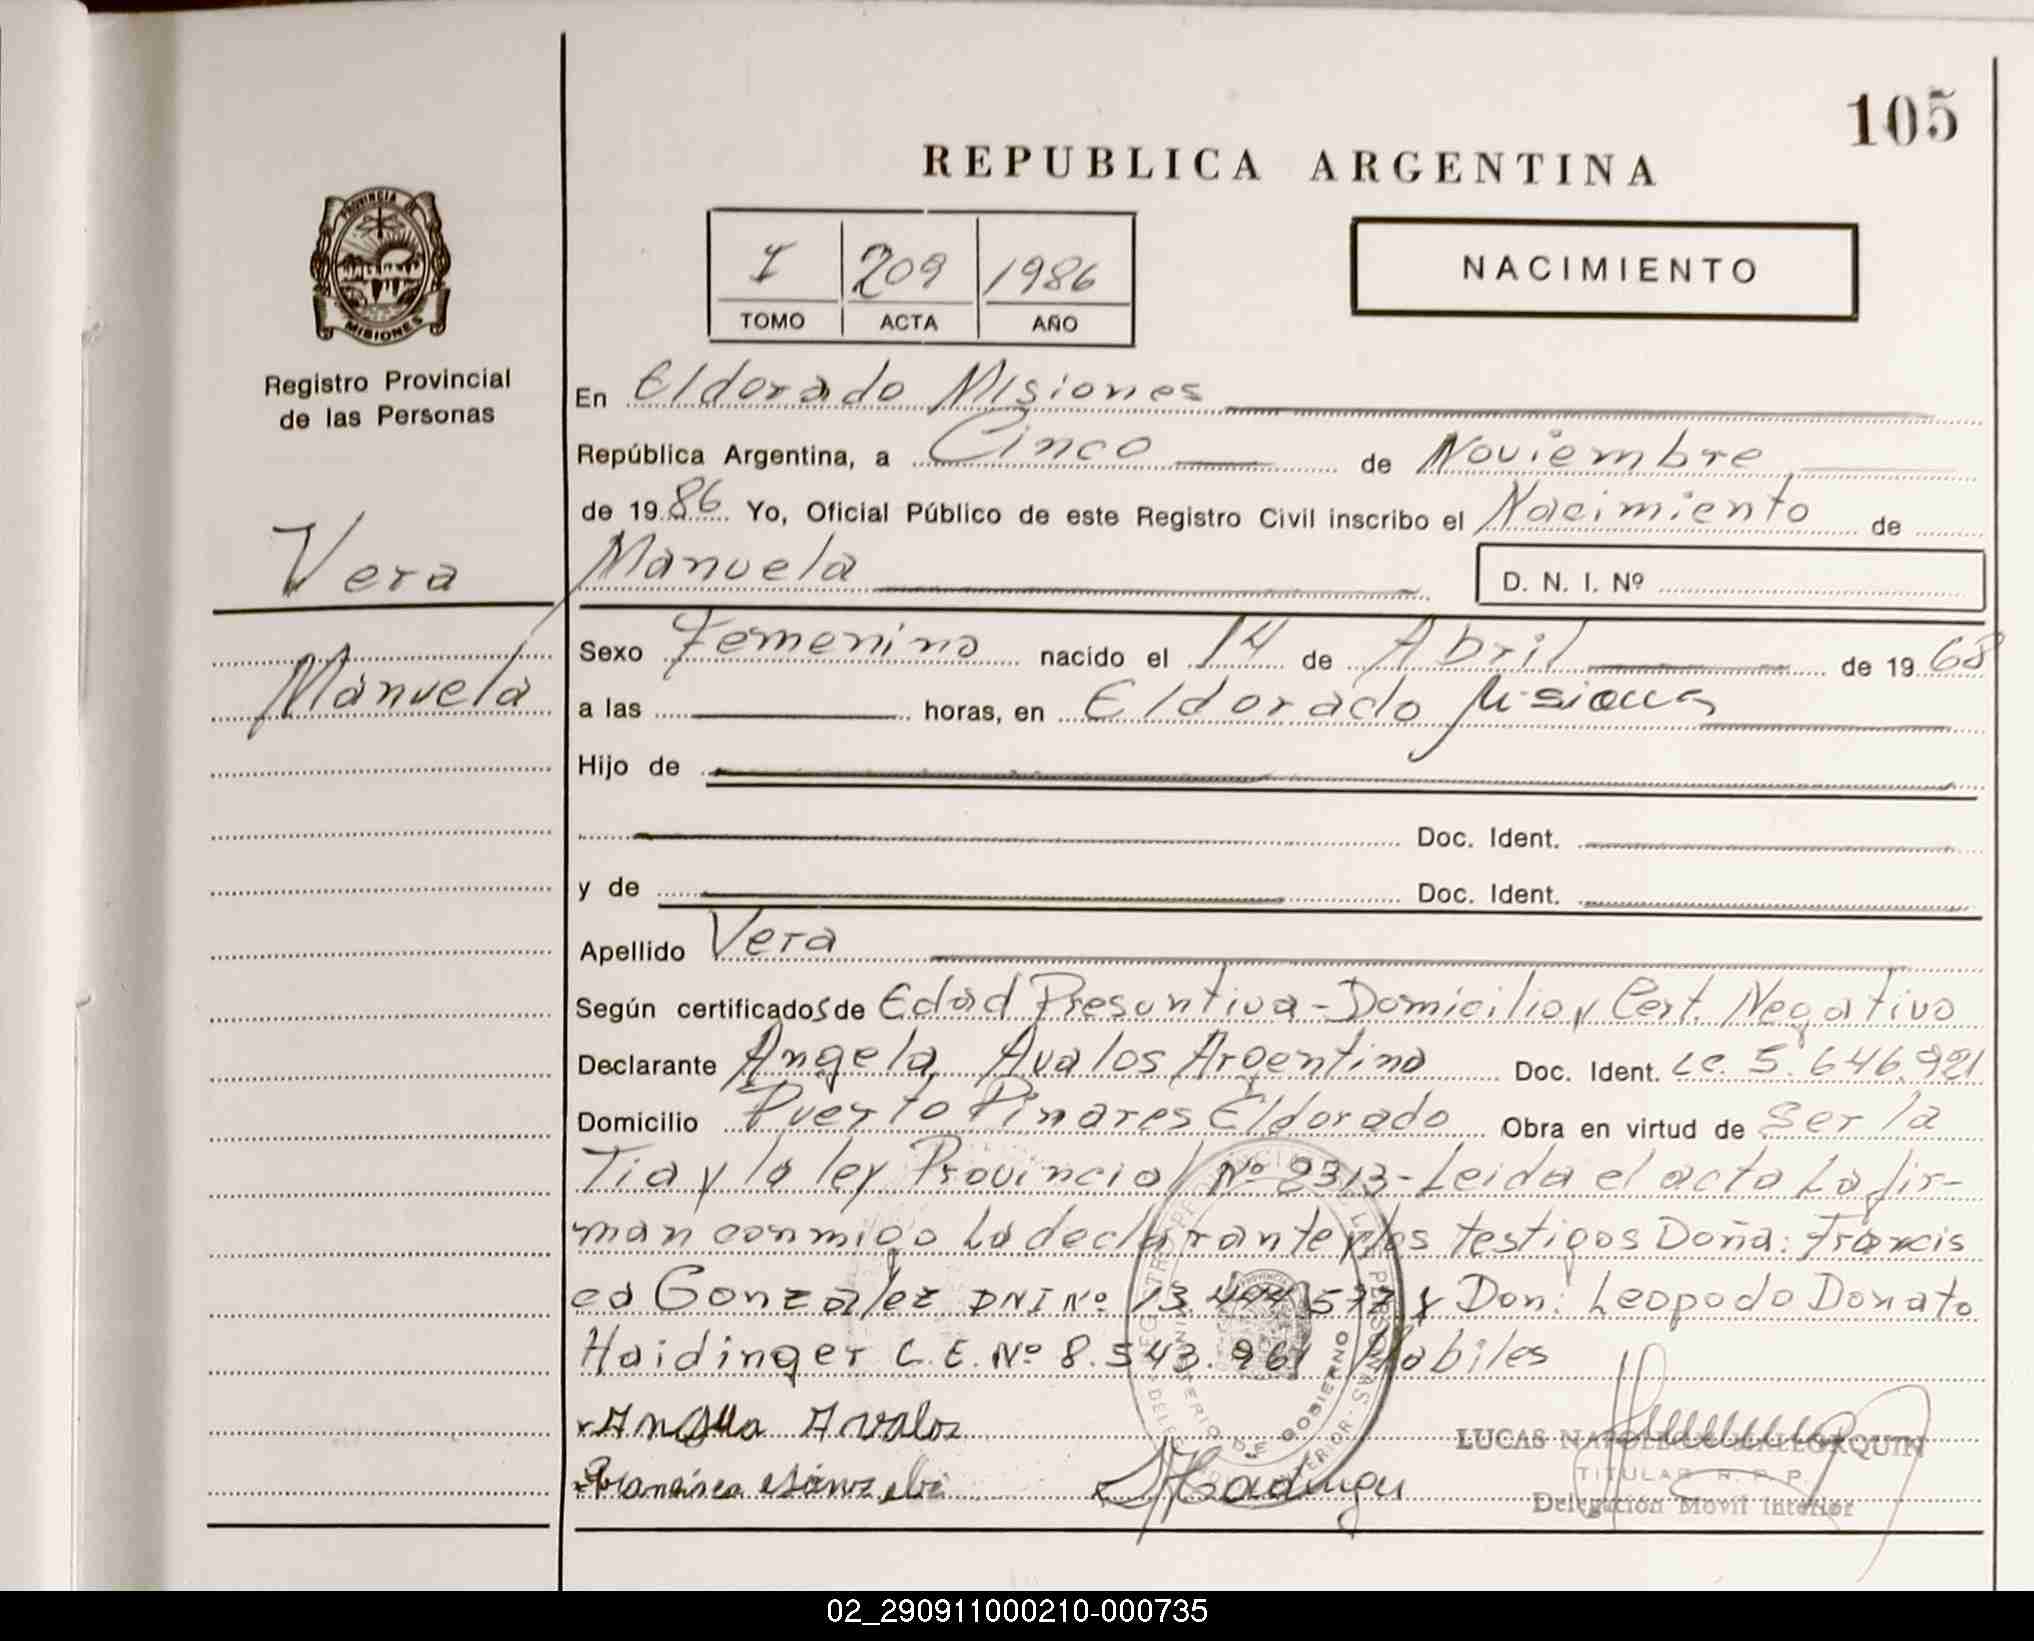 105
REPUBLICA ARGENTINA
PROVINCIA DE
MISIONES
I 209 1986
TOMO ACTA AÑO
NACIMIENTO
Registro Provincial
de las Personas
En Eldorado Misiones
República Argentina, a Cinco de Noviembre
de 1986 Yo, Oficial Público de este Registro Civil inscribo el Nacimiento de
Vera
Manuela
D. N. I. Nº
Manuela
Sexo Femenino nacido el 14 de Abril de 1968
a las horas, en Eldorado Misiones
Hijo de
Doc. Ident.
y de Doc. Ident.
Apellido Vera
Según certificados de Edad Presuntiva - Domicilio y Cert. Negativo
Declarante Angela Avalos Argentina Doc. Ident. LC. 5.646.921
Domicilio Puerto Pinares Eldorado Obra en virtud de ser la
Tia y la ley Provincial Nº 2313 - Leida el acta La fir-
man conmigo La declarante y los testigos Doña: Francis
ca González DNI Nº 13. 577 y Don: Leopodo Donato
Haidinger C.E. Nº 8.543.961 Habiles
Angela Avalos
Francisca Gonzalez
Haidinger
LUCAS
TITULAR R. P. P.
Delegación Movil Interior
MINISTERIO DE GOBIERNO
02_290911000210-000735